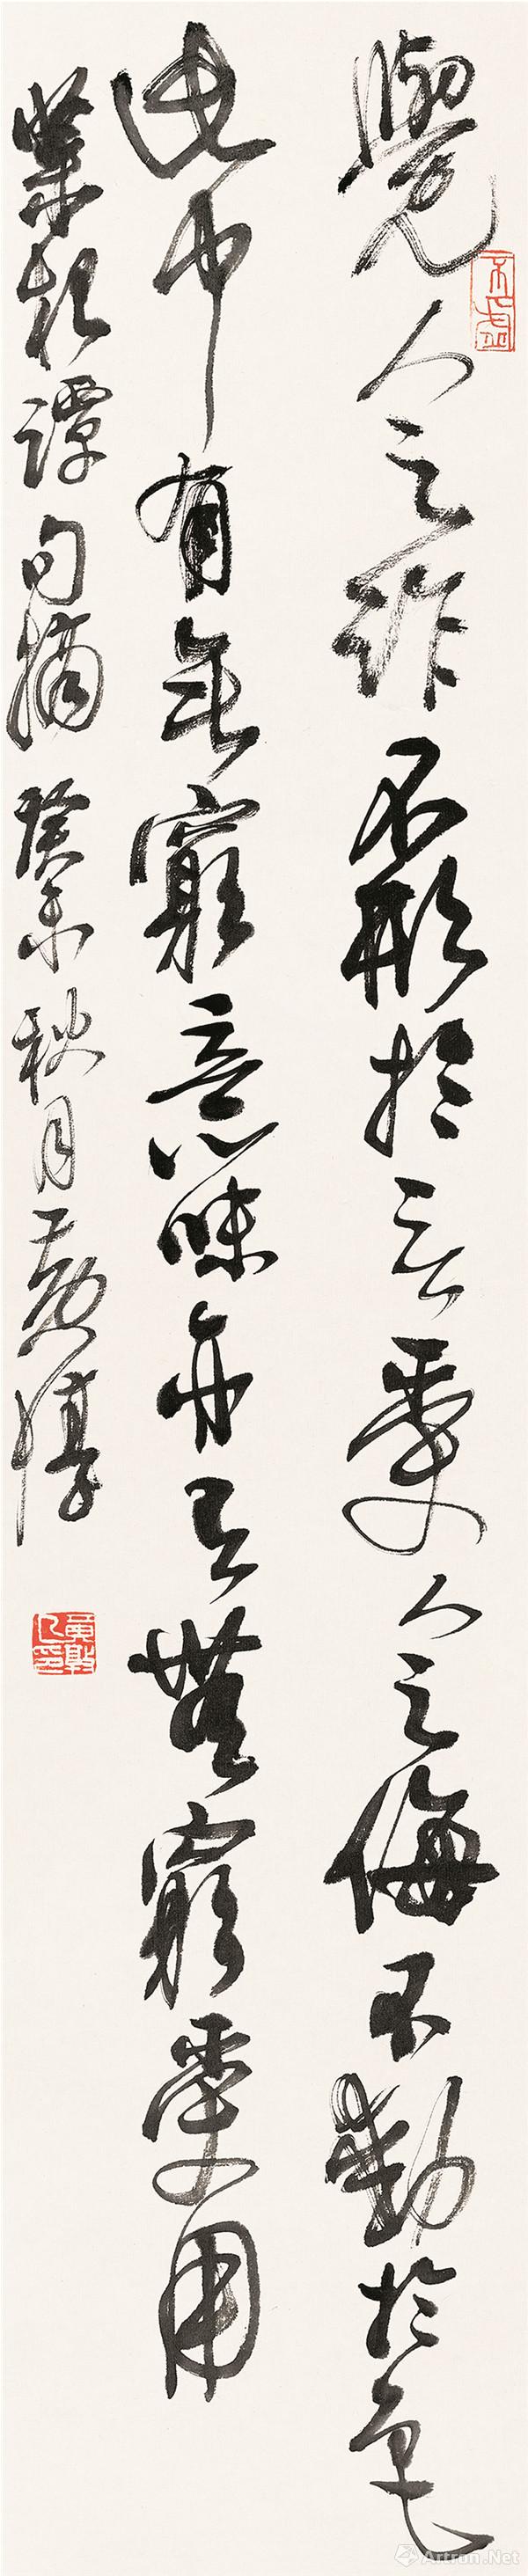 覺人之詐不形於言受人之侮不動於色
此中有無窮意味亦有無窮受用
菜根譚句摘癸未秋月黄惇
不虛
黄惇之印
Artron.Net